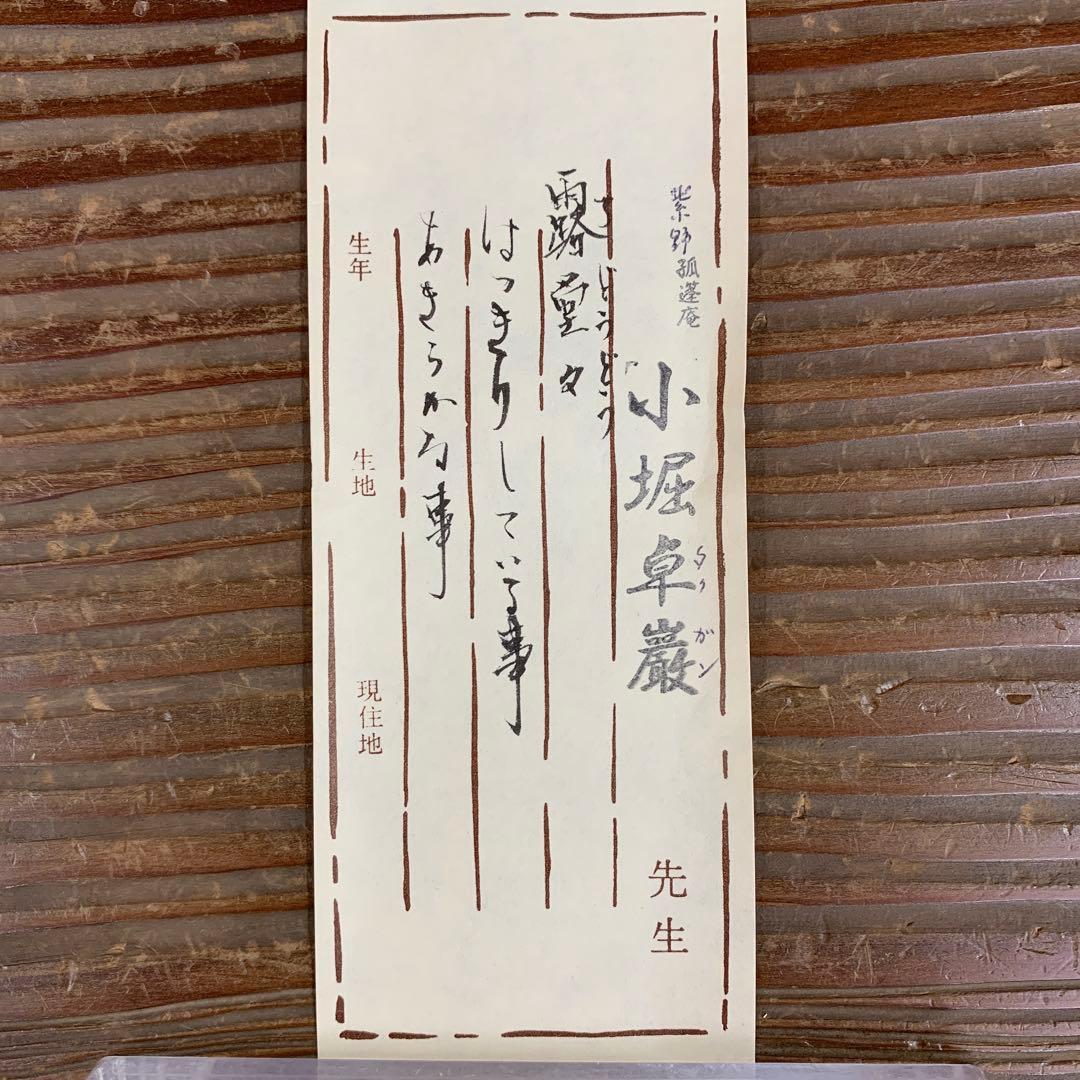 紫野孤蓬庵
小堀卓巌
タクガン
先生
ろどうどう
露堂々
はっきりしている事
あきらかな事
生年
生地
現住地